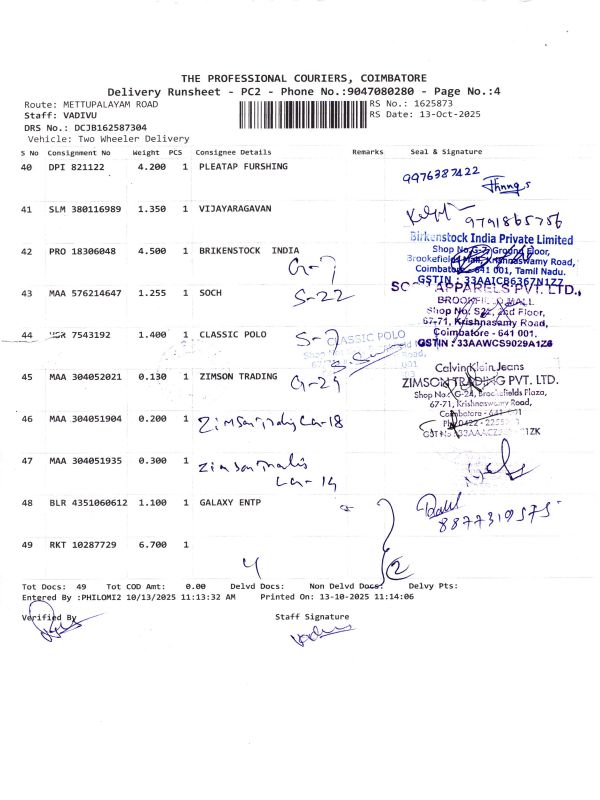 THE PROFESSIONAL COURIERS, COIMBATORE
Delivery Runsheet - PC2 - Phone No.:9047080280 - Page No.:4
Route: METTUPALAYAM ROAD RS No.: 1625873
Staff: VADIVU RS Date: 13-Oct-2025
DRS No.: DCJB162587304
Vehicle: Two Wheeler Delivery
S No Consignment No Weight PCS Consignee Details Remarks Seal & Signature
40 DPI 821122 4.200 1 PLEATAP FURSHING
9976387422
41 SLM 380116989 1.350 1 VIJAYARAGAVAN
9791865756
Birkenstock India Private Limited
42 PRO 18306048 4.500 1 BRIKENSTOCK INDIA
Shop No.G-7, Ground Floor,
Brookefields Mall, Krishnaswamy Road,
G-7
Coimbatore - 641 001, Tamil Nadu.
GSTIN : 33AAICB6367N1Z7
43 MAA 576214647 1.255 1 SOCH
S-22
APPARELS PVT. LTD.,
BROOKEFIELD MALL
Shop No. S22, 2nd Floor,
67-71, Krishnasamy Road,
Coimbatore - 641 001.
GSTIN : 33AAWCS9029A1Z6
44 7543192 1.400 1 CLASSIC POLO
S-7
CLASSIC POLO
Shop
Road,
45 MAA 304052021 0.130 1 ZIMSON TRADING
G-24
Calvin Klein Jeans
ZIMSON TRADING PVT. LTD.
Shop No. G-24, Brookefields Plaza,
67-71, Krishnaswamy Road,
Coimbatore - 641 001
46 MAA 304051904 0.200 1 Zimson Trading
47 MAA 304051935 0.300 1 Zimson
48 BLR 4351060612 1.100 1 GALAXY ENTP
8877319575
49 RKT 10287729 6.700 1
4 2
Tot Docs: 49 Tot COD Amt: 0.00 Delvd Docs: Non Delvd Docs: Delvy Pts:
Entered By :PHILOMI2 10/13/2025 11:13:32 AM Printed On: 13-10-2025 11:14:06
Verified By Staff Signature